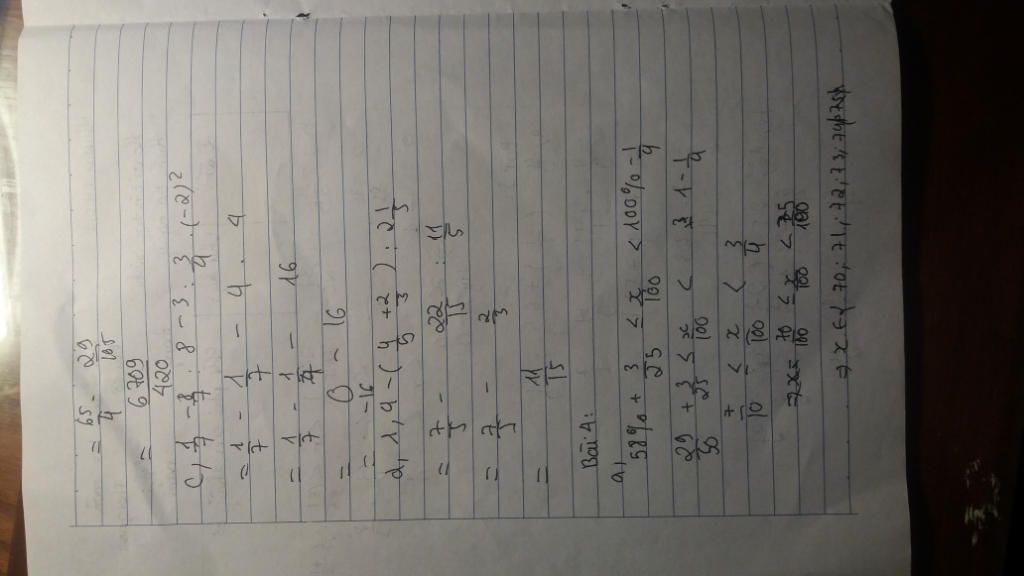 = 65/4 - 29/105
= 6709/420
c, 1/7 - 8/7 : 8 - 3 : 3/4 . (-2)²
= 1/7 - 1/7 - 4 . 4
= 1/7 - 1/7 - 16
= 0 - 16
= -16
d, 1,4 - (4/5 + 2/3) : 2 1/5
= 7/5 - 22/15 : 11/5
= 7/5 - 2/3
= 11/15
Bài 4:
a,
58% + 3/25 ≤ x/100 < 100% - 1/4
29/50 + 3/25 ≤ x/100 < 1 - 1/4
7/10 ≤ x/100 < 3/4
70/100 ≤ x/100 < 75/100
⇒ x ∈ { 70, 71, 72, 73, 74